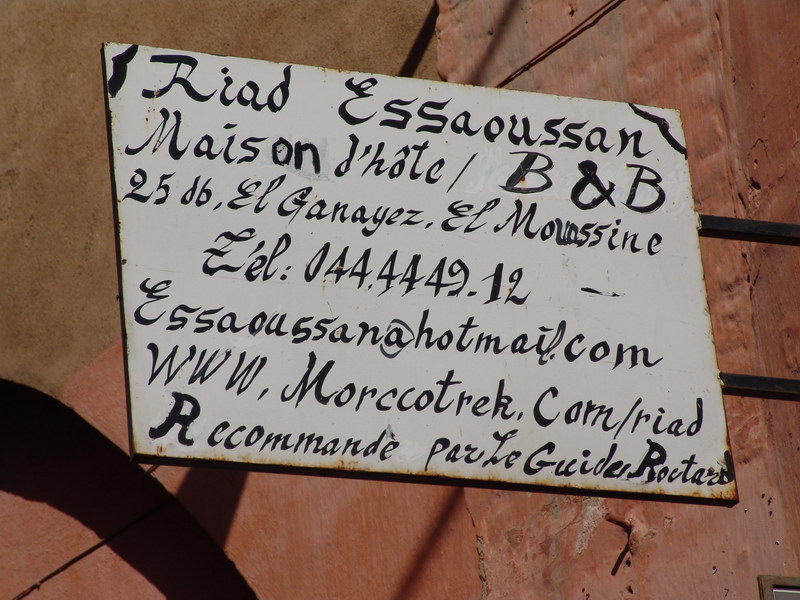 Riad Essaoussan
Maison d'hôte / B & B
25 db, El Ganayez, El Mouassine
Tél: 044.4449.12
Essaoussan@hotmail.com
WWW, Morccotrek. Com/riad
Reccommandè par Le Guide Roctard